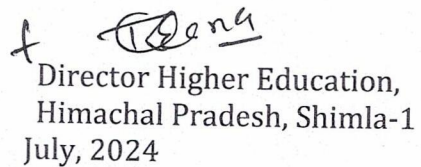 Director Higher Education,
Himachal Pradesh, Shimla-1
July, 2024